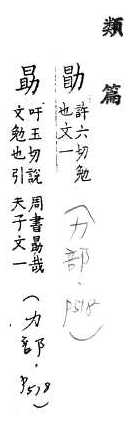 類篇
勖
許六切勉
也文一
(力部.P518)
勗
吁玉切說
文勉也引
周書勗哉
夫子文一
(力部.P518)